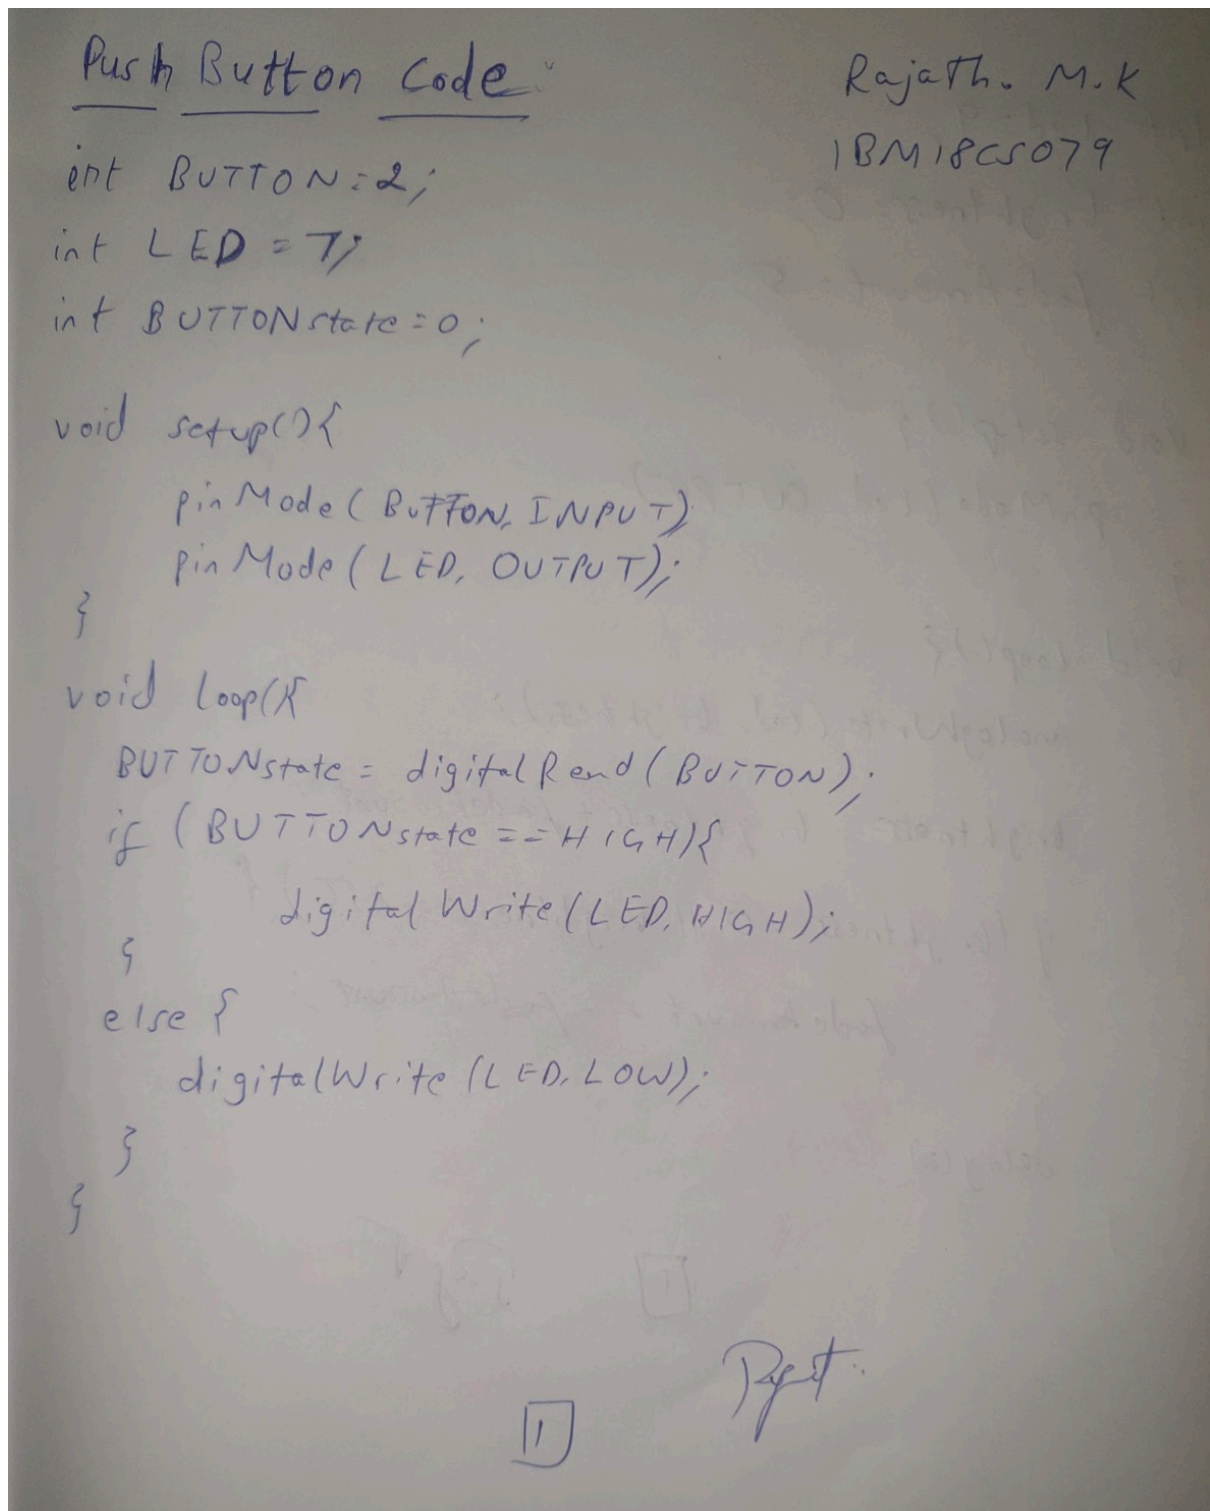 Push Button Code
Rajath. M.K
1BM18CS079
int BUTTON=2;
int LED = 7;
int BUTTONstate=0;
void setup(){
pinMode(BUTTON, INPUT);
pinMode(LED, OUTPUT);
}
void loop(){
BUTTONstate = digitalRead(BUTTON);
if (BUTTONstate ==HIGH){
digitalWrite(LED, HIGH);
}
else {
digitalWrite(LED, LOW);
}
}
1